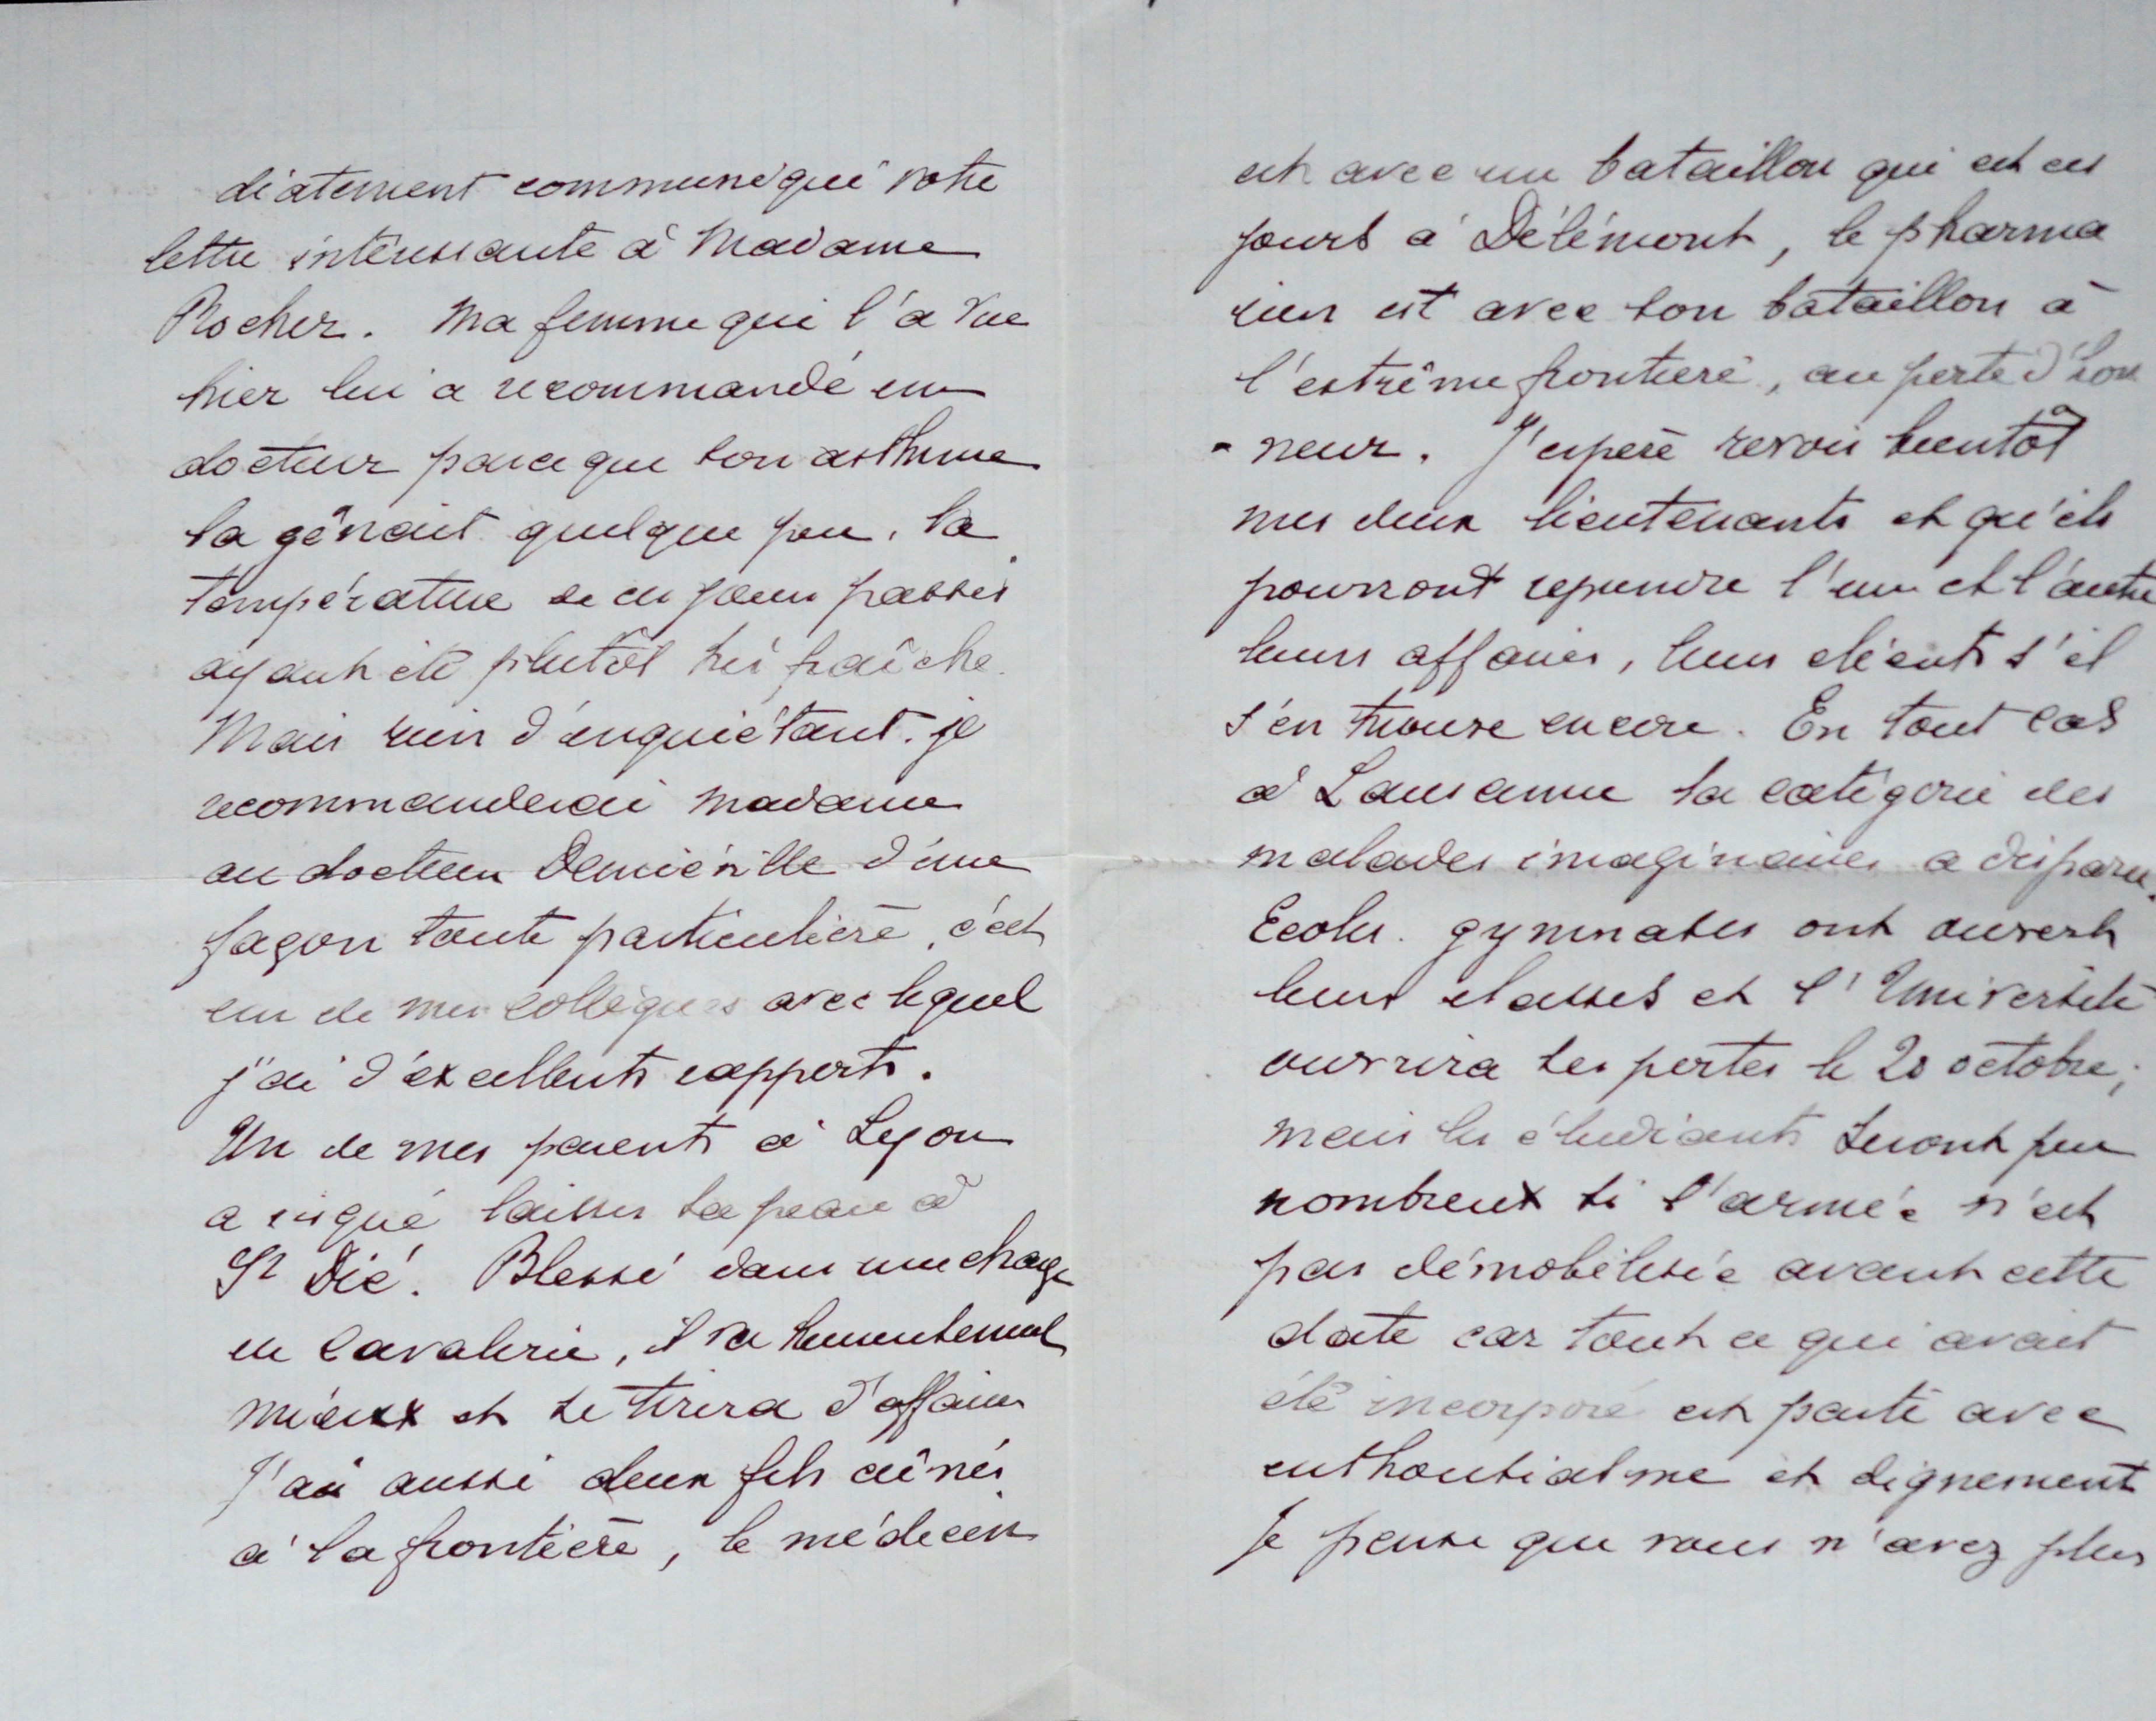 diatement communiqué votre
lettre intéressante à Madame
Rocher. Ma femme qui l'a vue
hier lui a recommandé un
docteur parce que son asthme
la gênait quelque peu, la
température de ces jours passés
ayant été plutôt très fraîche.
Mais rien d'inquiétant. je
recommanderai Madame
au docteur Demiéville d'une
façon toute particulière, c'est
un de mes collègues avec lequel
j'ai d'excellents rapports.
Un de mes parents à Lyon
a risqué laisser sa peau à
St Dié. Blessé dans une charge
de cavalerie, il va
mieux et se tirera d'affaires
J'ai aussi deux fils aînés
à la frontière, le médecin
est avec un bataillon qui est ces
jours à Délémont, le pharma
cien est avec son bataillon à
l'extrême frontière, au poste d'hon
- neur. J'espère revoir bientôt
mes deux lieutenants et qu'ils
pourront reprendre l'un et l'autre
leurs affaires, leurs clients s'il
s'en trouve encore. En tout cas
à Lausanne la catégorie des
malades imaginaires a disparu.
Ecoles. gymnases ont ouvert
leurs classes et l'Université
ouvrira ses portes le 20 octobre;
mais les étudiants seront peu
nombreux si l'armée n'est
pas démobilisée avant cette
date car tout ce qui avait
été incorporé est parti avec
enthousiasme et dignement
Je pense que vous n'avez plus